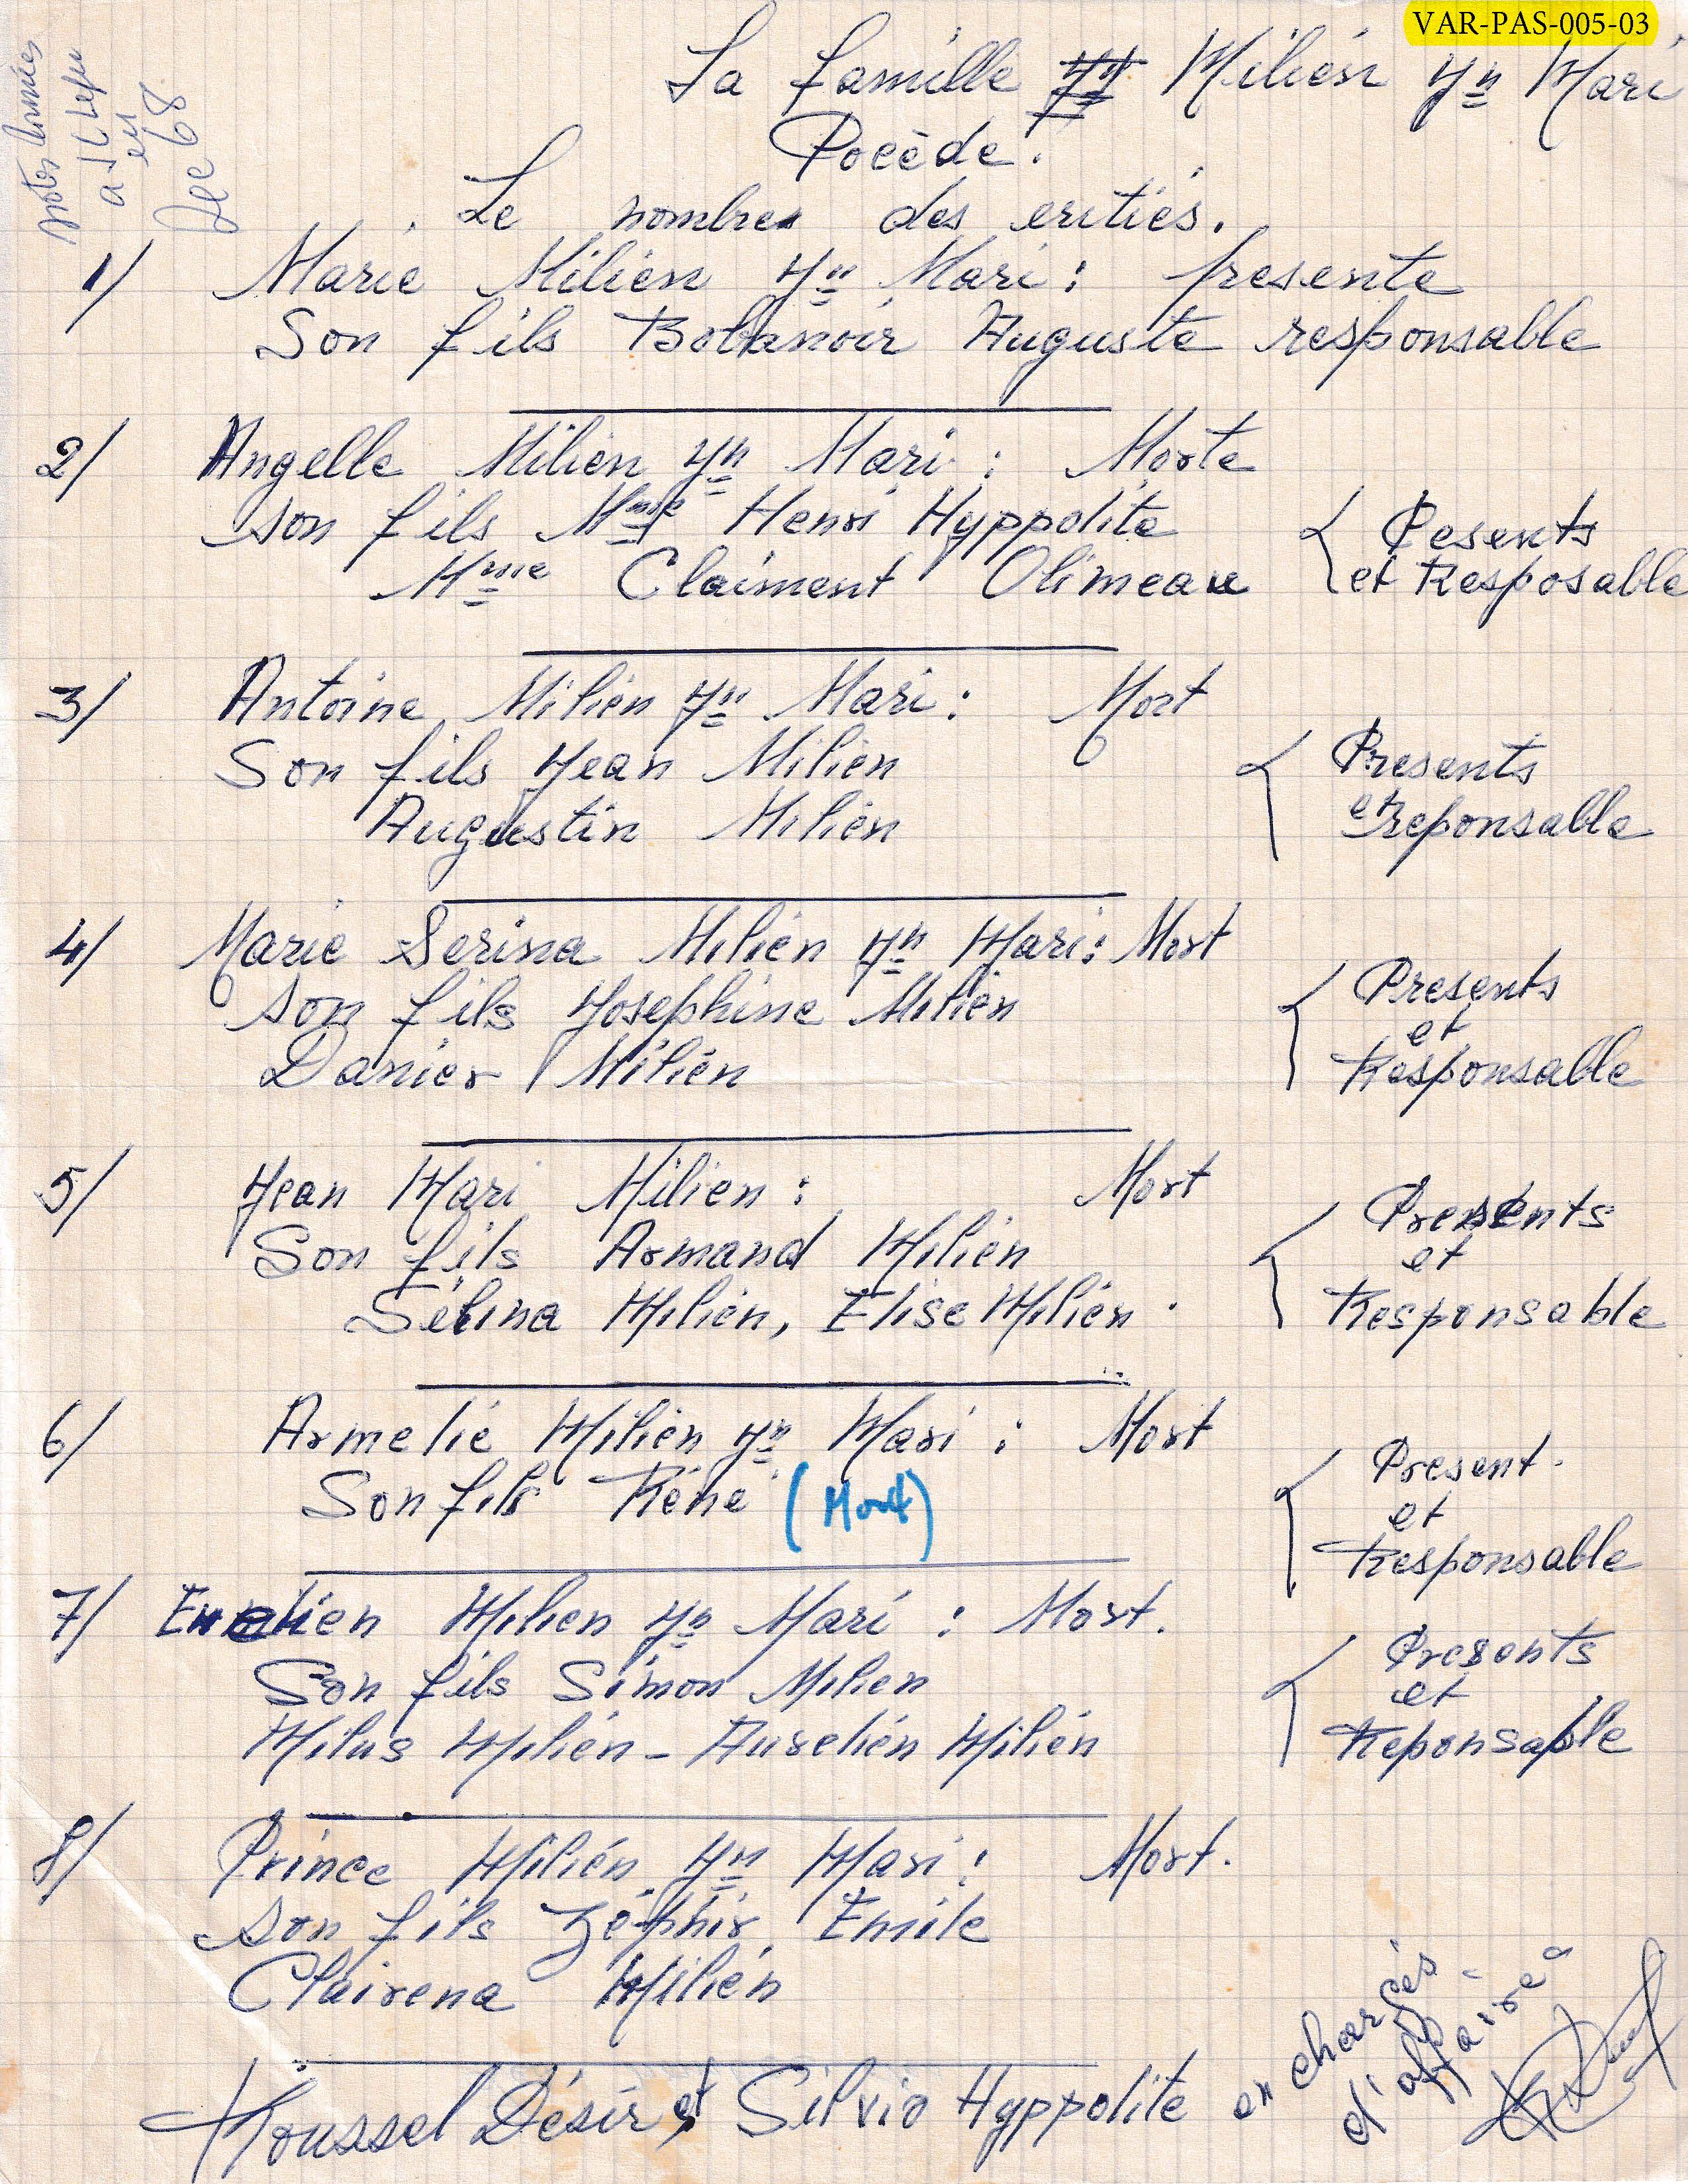 VAR-PAS-005-03
notes données
a JC Lepu
en
Dec 68
La famille Milién Yn Mari
Pocède.
Le nombre des eritiés.
1/ Marie Milién Yn Mari : presente
Son fils Bolanoir Auguste responsable
2/ Angelle Milién Yn Mari : Morte
son fils Mme Henri Hyppolite
Mme Claiment Olimeau
Pesents
et Resposable
3/ Antoine Milién Yn Mari : Mort
Son fils Yean Milién
Augustin Milién
Presents
et reponsable
4/ Marie Serina Milién Yn Mari : Mort
son fils Yosephine Milién
Danier Milién
Presents
et
Responsable
5/ Yean Mari Milien : Mort
Son fils Armand Milién
Sélina Milién, Elise Milién.
Presents
et
Responsable
6/ Armelié Milién Yn Mari : Mort
Son fils Réné (Mort)
Present.
et
Responsable
7/ Milien Yn Mari : Mort.
Son fils Simon Milien
Milus Milién - Aurelién Milién
Presents
et
Reponsable
8/ Prince Milién Yn Mari : Mort.
son fils Zéphir Emile
Clairena Milién
Roussel Désir et Silvio Hyppolite
en chargés
d'affaire